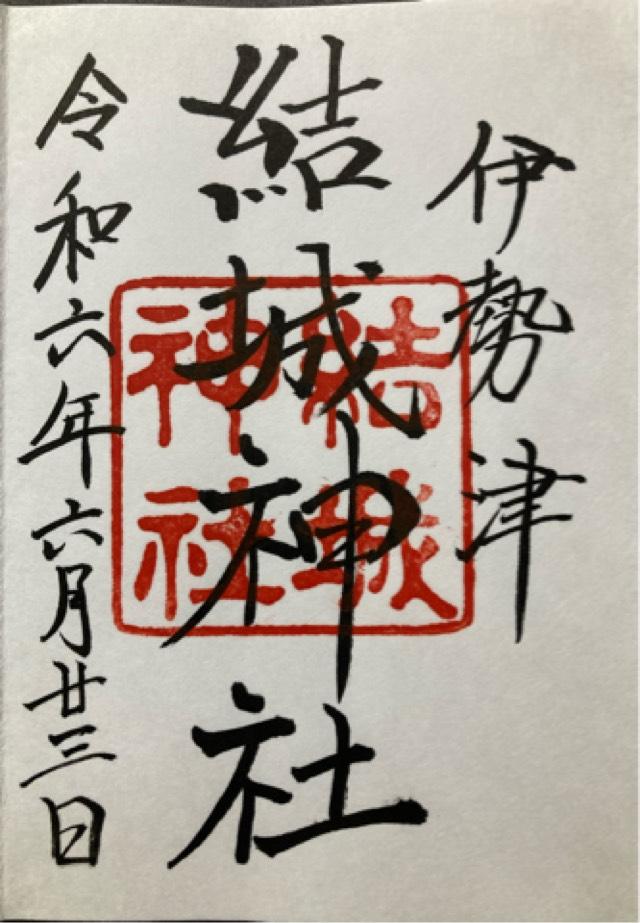 伊勢津
結城神社
結城
神社
令和六年六月廿三日